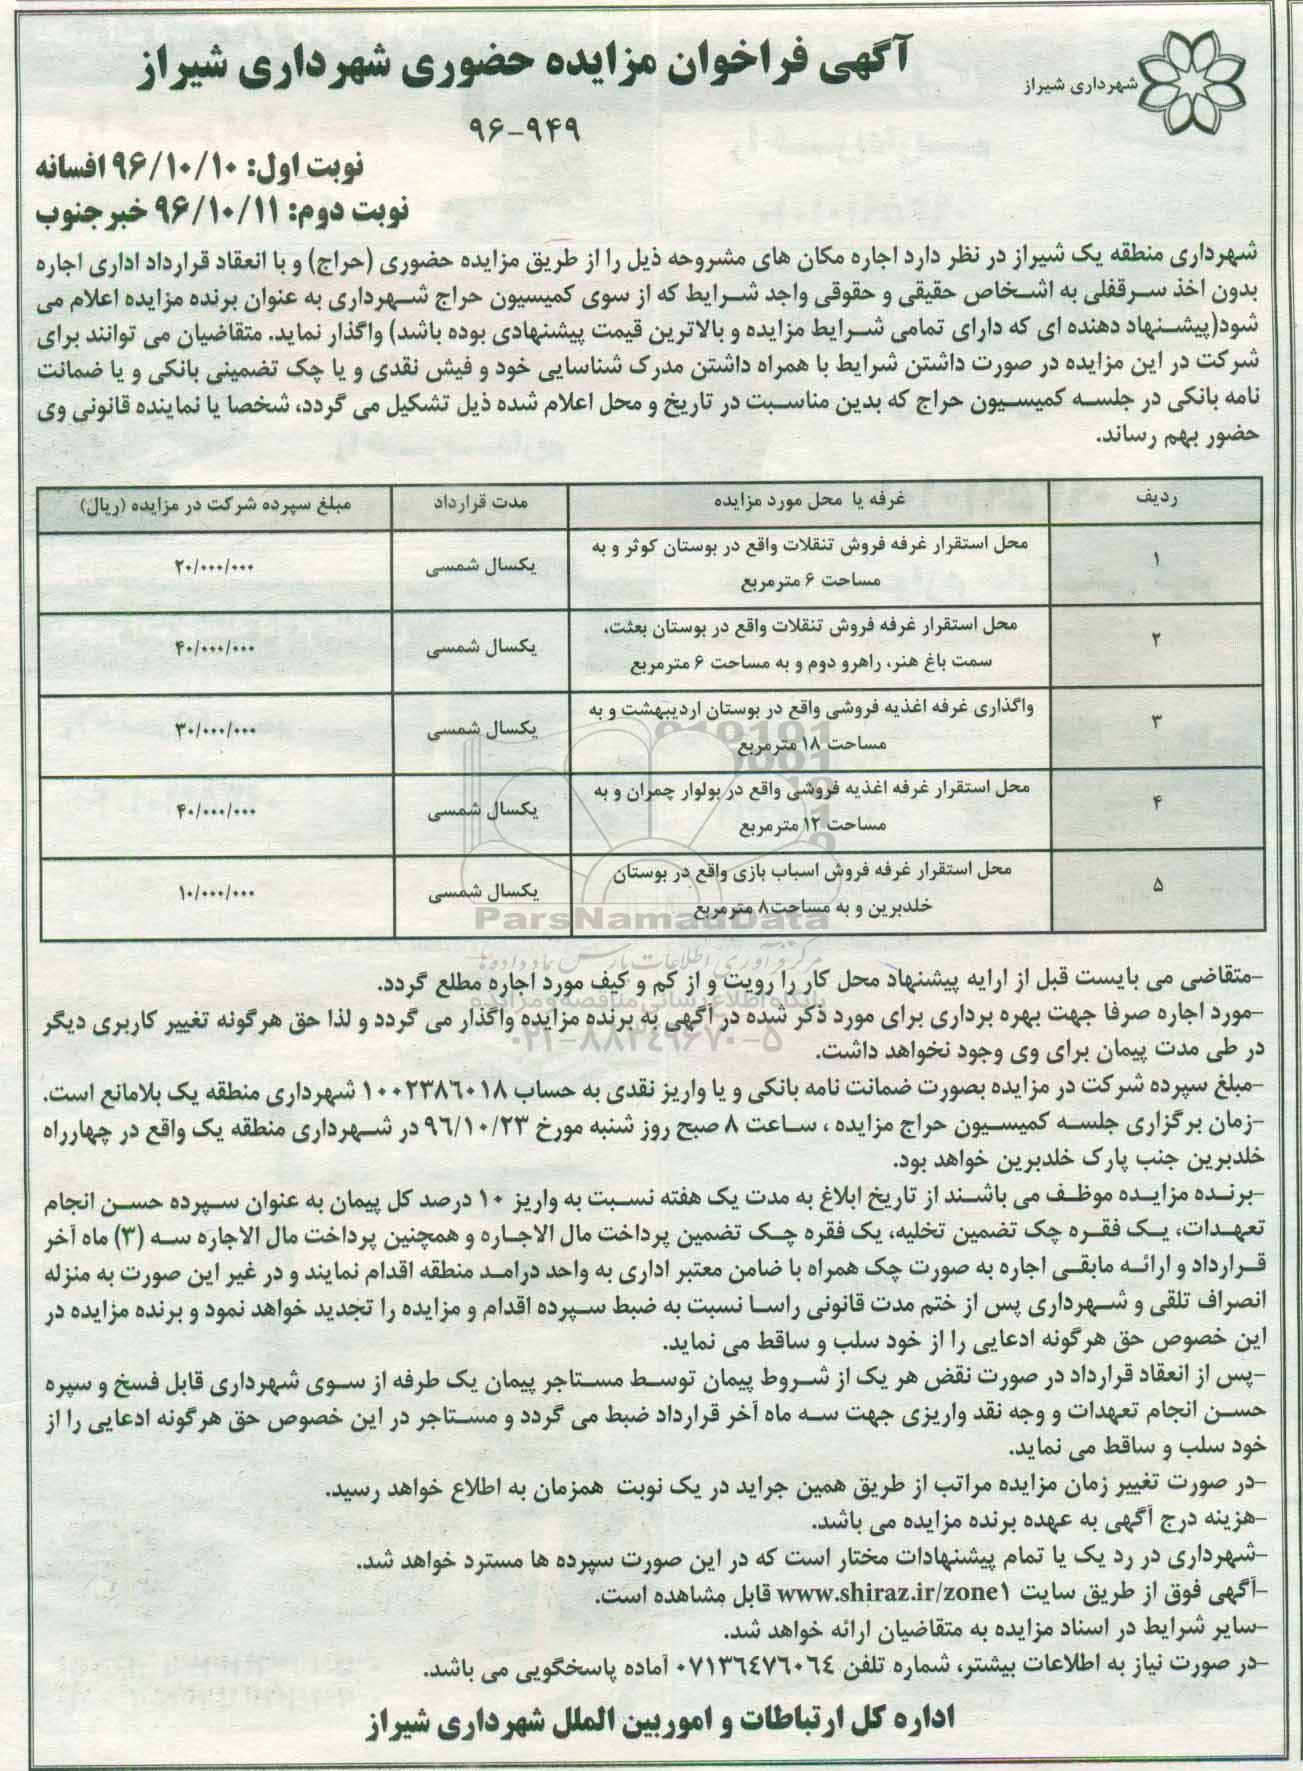 شهرداری شیراز
آگهی فراخوان مزایده حضوری شهرداری شیراز
۹۶-۹۴۹
نوبت اول: ۹۶/۱۰/۱۰ افسانه
نوبت دوم: ۹۶/۱۰/۱۱ خبرجنوب
شهرداری منطقه یک شیراز در نظر دارد اجاره مکان های مشروحه ذیل را از طریق مزایده حضوری (حراج) و با انعقاد قرارداد اداری اجاره
بدون اخذ سرقفلی به اشخاص حقیقی و حقوقی واجد شرایط که از سوی کمیسیون حراج شهرداری به عنوان برنده مزایده اعلام می
شود(پیشنهاد دهنده ای که دارای تمامی شرایط مزایده و بالاترین قیمت پیشنهادی بوده باشد) واگذار نماید. متقاضیان می توانند برای
شرکت در این مزایده در صورت داشتن شرایط با همراه داشتن مدرک شناسایی خود و فیش نقدی و یا چک تضمینی بانکی و یا ضمانت
نامه بانکی در جلسه کمیسیون حراج که بدین مناسبت در تاریخ و محل اعلام شده ذیل تشکیل می گردد، شخصا یا نماینده قانونی وی
حضور بهم رساند.
ردیف غرفه یا محل مورد مزایده مدت قرارداد مبلغ سپرده شرکت در مزایده (ریال)
۱ محل استقرار غرفه فروش تنقلات واقع در بوستان کوثر و به یکسال شمسی ۲۰/۰۰۰/۰۰۰
مساحت ۶ مترمربع
۲ محل استقرار غرفه فروش تنقلات واقع در بوستان بعثت، یکسال شمسی ۴۰/۰۰۰/۰۰۰
سمت باغ هنر، راهرو دوم و به مساحت ۶ مترمربع
۳ واگذاری غرفه اغذیه فروشی واقع در بوستان اردیبهشت و به یکسال شمسی ۳۰/۰۰۰/۰۰۰
مساحت ۱۸ مترمربع
۴ محل استقرار غرفه اغذیه فروشی واقع در بولوار چمران و به یکسال شمسی ۴۰/۰۰۰/۰۰۰
مساحت ۱۲ مترمربع
۵ محل استقرار غرفه فروش اسباب بازی واقع در بوستان یکسال شمسی ۱۰/۰۰۰/۰۰۰
خلدبرین و به مساحت۸ مترمربع
ParsNamadData
مرکز فرآوری اطلاعات پارس نماد داده ها
پایگاه اطلاع رسانی مناقصه و مزایده
۰۲۱-۸۸۳۴۹۶۷۰-۵
-متقاضی می بایست قبل از ارایه پیشنهاد محل کار را رویت و از کم و کیف مورد اجاره مطلع گردد.
-مورد اجاره صرفا جهت بهره برداری برای مورد ذکر شده در آگهی به برنده مزایده واگذار می گردد و لذا حق هرگونه تغییر کاربری دیگر
در طی مدت پیمان برای وی وجود نخواهد داشت.
-مبلغ سپرده شرکت در مزایده بصورت ضمانت نامه بانکی و یا واریز نقدی به حساب ۱۰۰۲۳۸۶۰۱۸ شهرداری منطقه یک بلامانع است.
-زمان برگزاری جلسه کمیسیون حراج مزایده ، ساعت ۸ صبح روز شنبه مورخ ۹۶/۱۰/۲۳ در شهرداری منطقه یک واقع در چهارراه
خلدبرین جنب پارک خلدبرین خواهد بود.
-برنده مزایده موظف می باشند از تاریخ ابلاغ به مدت یک هفته نسبت به واریز ۱۰ درصد کل پیمان به عنوان سپرده حسن انجام
تعهدات، یک فقره چک تضمین تخلیه، یک فقره چک تضمین پرداخت مال الاجاره و همچنین پرداخت مال الاجاره سه (۳) ماه آخر
قرارداد و ارائه مابقی اجاره به صورت چک همراه با ضامن معتبر اداری به واحد درامد منطقه اقدام نمایند و در غیر این صورت به منزله
انصراف تلقی و شهرداری پس از ختم مدت قانونی راسا نسبت به ضبط سپرده اقدام و مزایده را تجدید خواهد نمود و برنده مزایده در
این خصوص حق هرگونه ادعایی را از خود سلب و ساقط می نماید.
-پس از انعقاد قرارداد در صورت نقض هر یک از شروط پیمان توسط مستاجر پیمان یک طرفه از سوی شهرداری قابل فسخ و سپره
حسن انجام تعهدات و وجه نقد واریزی جهت سه ماه آخر قرارداد ضبط می گردد و مستاجر در این خصوص حق هرگونه ادعایی را از
خود سلب و ساقط می نماید.
-در صورت تغییر زمان مزایده مراتب از طریق همین جراید در یک نوبت همزمان به اطلاع خواهد رسید.
-هزینه درج آگهی به عهده برنده مزایده می باشد.
-شهرداری در رد یک یا تمام پیشنهادات مختار است که در این صورت سپرده ها مسترد خواهد شد.
-آگهی فوق از طریق سایت www.shiraz.ir/zone۱ قابل مشاهده است.
-سایر شرایط در اسناد مزایده به متقاضیان ارائه خواهد شد.
-در صورت نیاز به اطلاعات بیشتر، شماره تلفن ۰۷۱۳۶۴۷۶۰۶۴ آماده پاسخگویی می باشد.
اداره کل ارتباطات و اموربین الملل شهرداری شیراز